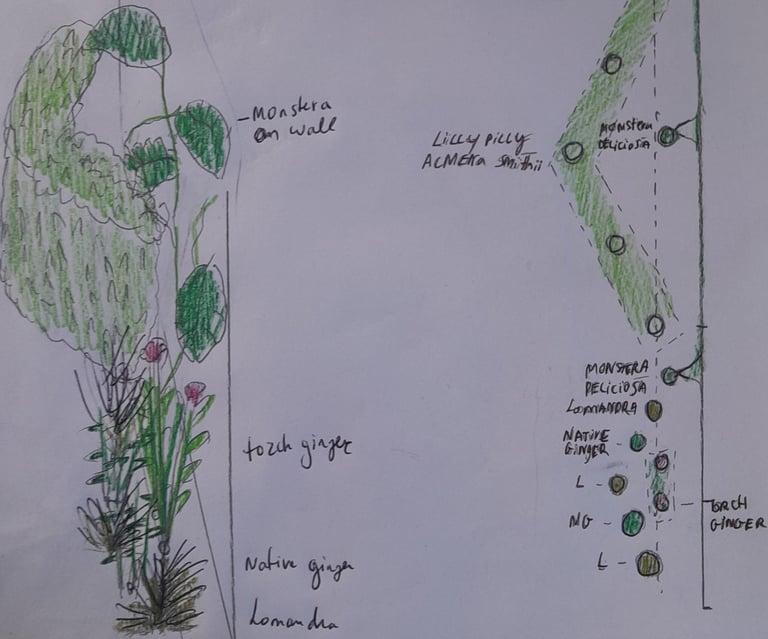 Monstera
on wall
torch ginger
Native ginger
Lomandra
LILLY PILLY
ACMENA SMITHII
MONSTERA
DELICIOSIA
MONSTERA
DELICIOSIA
LOMANDRA
NATIVE
GINGER
L
NG
L
TORCH
GINGER